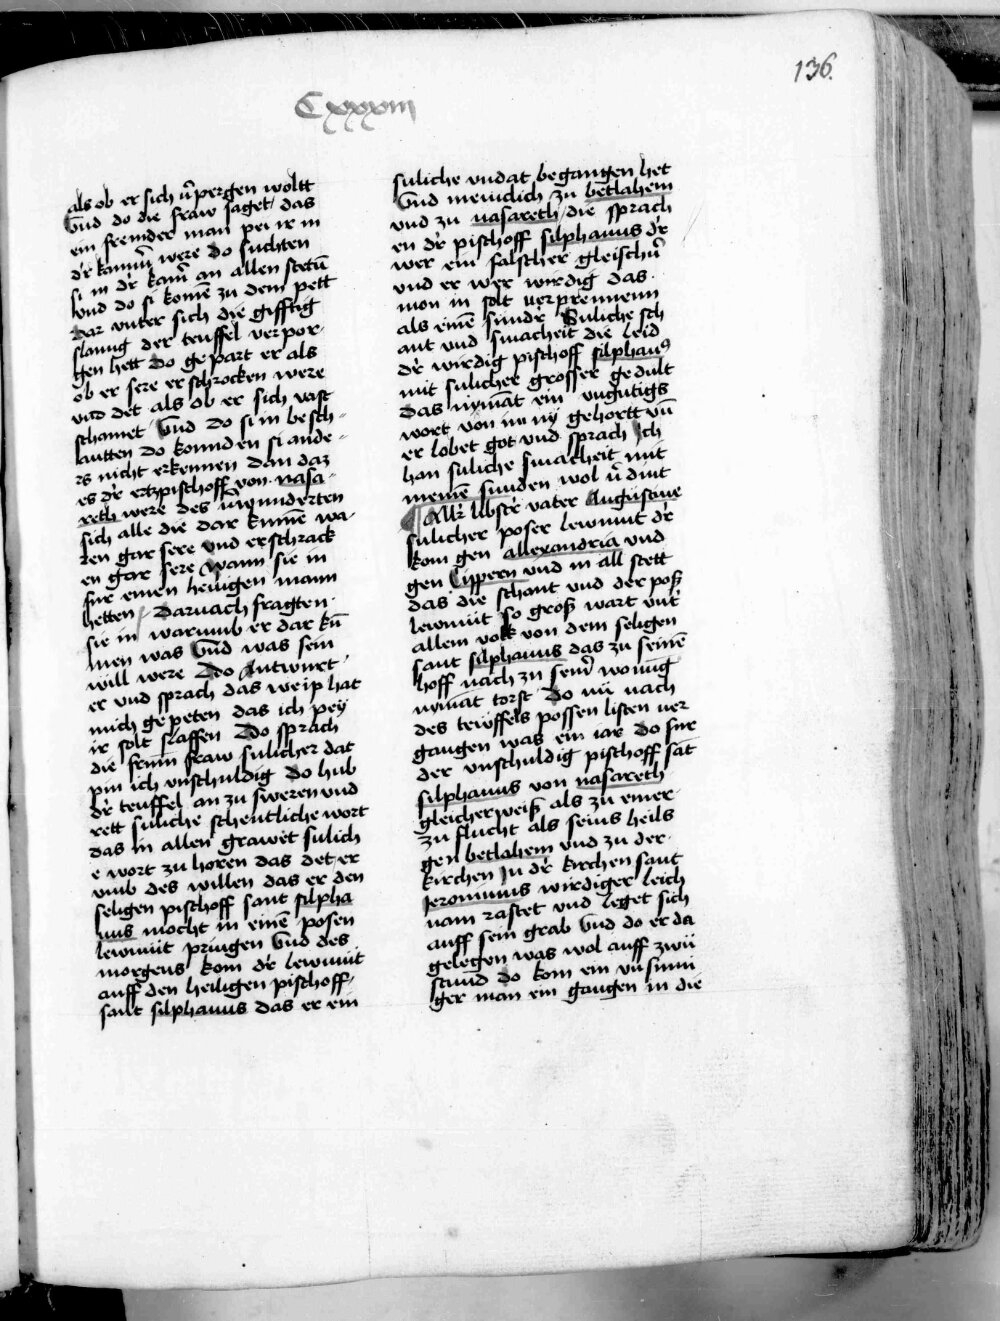 136.
Cxxxiii
als ob er sich v̉pergen woltt
Vnd do die fraw saget / das
ein fremder man pei ir in
d'r kam̅ʼ were do suchten
si in d'r kam̅ʼ an allen stetū
vnd do si komē zu dem pett
dar vnter sich die gifftig
slanng der teuffel verpor-
gen hett Do gepart er als
ob er sere erschrocken were
vnd det als ob er sich vast
schamet Vnd do si in besch-
autten do konnden si ande-
rs nicht erkennen dan daz
es d'r ertzpischoff von nasa-
reth were des v̉wunderten
sich alle die dar kumē wa-
ren gar sere vnd erschrack
en gar sere Wann sie in
fur einen heiligen mann
hetten / Darnach fragten
sie in warumb er dar kū
men was Vnd was sein
will were Do Antwurt
er vnd sprach das weip hat
mich gepeten das ich pey
ir solt slaffen Do sprach
die frum fraw sulicher dat
pin ich vnschuldig Do hub
d'r teuffel an zu sweren vnd
rett suliche schentliche wort
das in allen grawet sulich
e wort zu horen das det er
vmb des willen das er den
seligen pischoff sant silpha
nus mocht in einē posen
lewmūt pringen Vnd des
morgens kom d'r lewmūt
auff den heiligen pischoff
sant silphanus das er ein
suliche vndat begangen het
Vnd meniclich zu betlahem
vnd zu nasareth / die sprach
en d'r pischoff silphanus d'r
wer ein falscher gleischn̉
vnd er wer wirdig das
mon in solt verprennenn
als einē sund'r Suliche sch
ant vnd smacheit die leid
d'r wirdig pischoff silphanꝰ
mit sulicher grosser gedult
das nymāt ein vngutigs
wort von im ny gehortt vn̄
er lobet got vnd sprach Ich
han suliche smacheit mit
meinē sunden wol v̉dint
¶ Allr̉ libst'r vater Augustine
sulicher poser lewmut d'r
kom gen allexandria vnd
gen Cippern vnd in all stett
das die schant vnd der poß
lewmūt so groß wart vnt'
allem volk von dem seligen
sant silphanus das zu seinē
hoff nach zu sein̉ wonūg
nymāt torst Do nū nach
des teuffels possen listen ver
gangen was ein iar do fur
der vnschuldig pischoff sāt
silphanus von nasareth
gleicherweiß als zu einer
zu flucht als seins heils
gen betlahem vnd zu der
kirchen In d'r kirchen sant
Jeronimus wirdiger leich
nam rastet vnd leget sich
auff sein grab Vnd do er da
gelegen was wol auff zwū
stund do kom ein vn̄sinni
ger man ein gangen in die